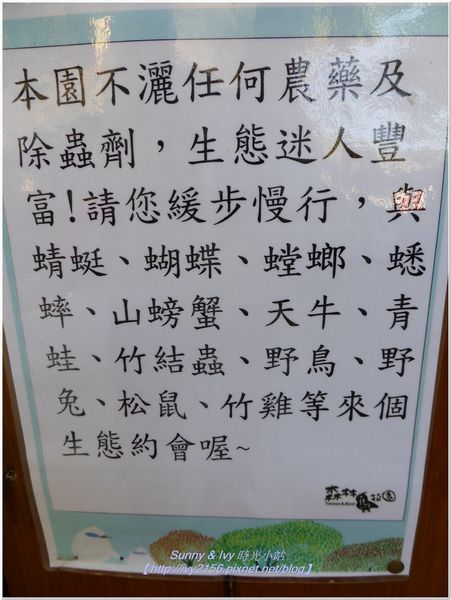 本園不灑任何農藥及
除蟲劑，生態迷人豐
富!請您緩步慢行，與
蜻蜓、蝴蝶、螳螂、蟋
蟀、山螃蟹、天牛、青
蛙、竹結蟲、野鳥、野
兔、松鼠、竹雞等來個
生態約會喔~
森林鳥花園
Forest & Bird
Sunny & Ivy 時光小站
【http://ivy2156.pixnet.net/blog】